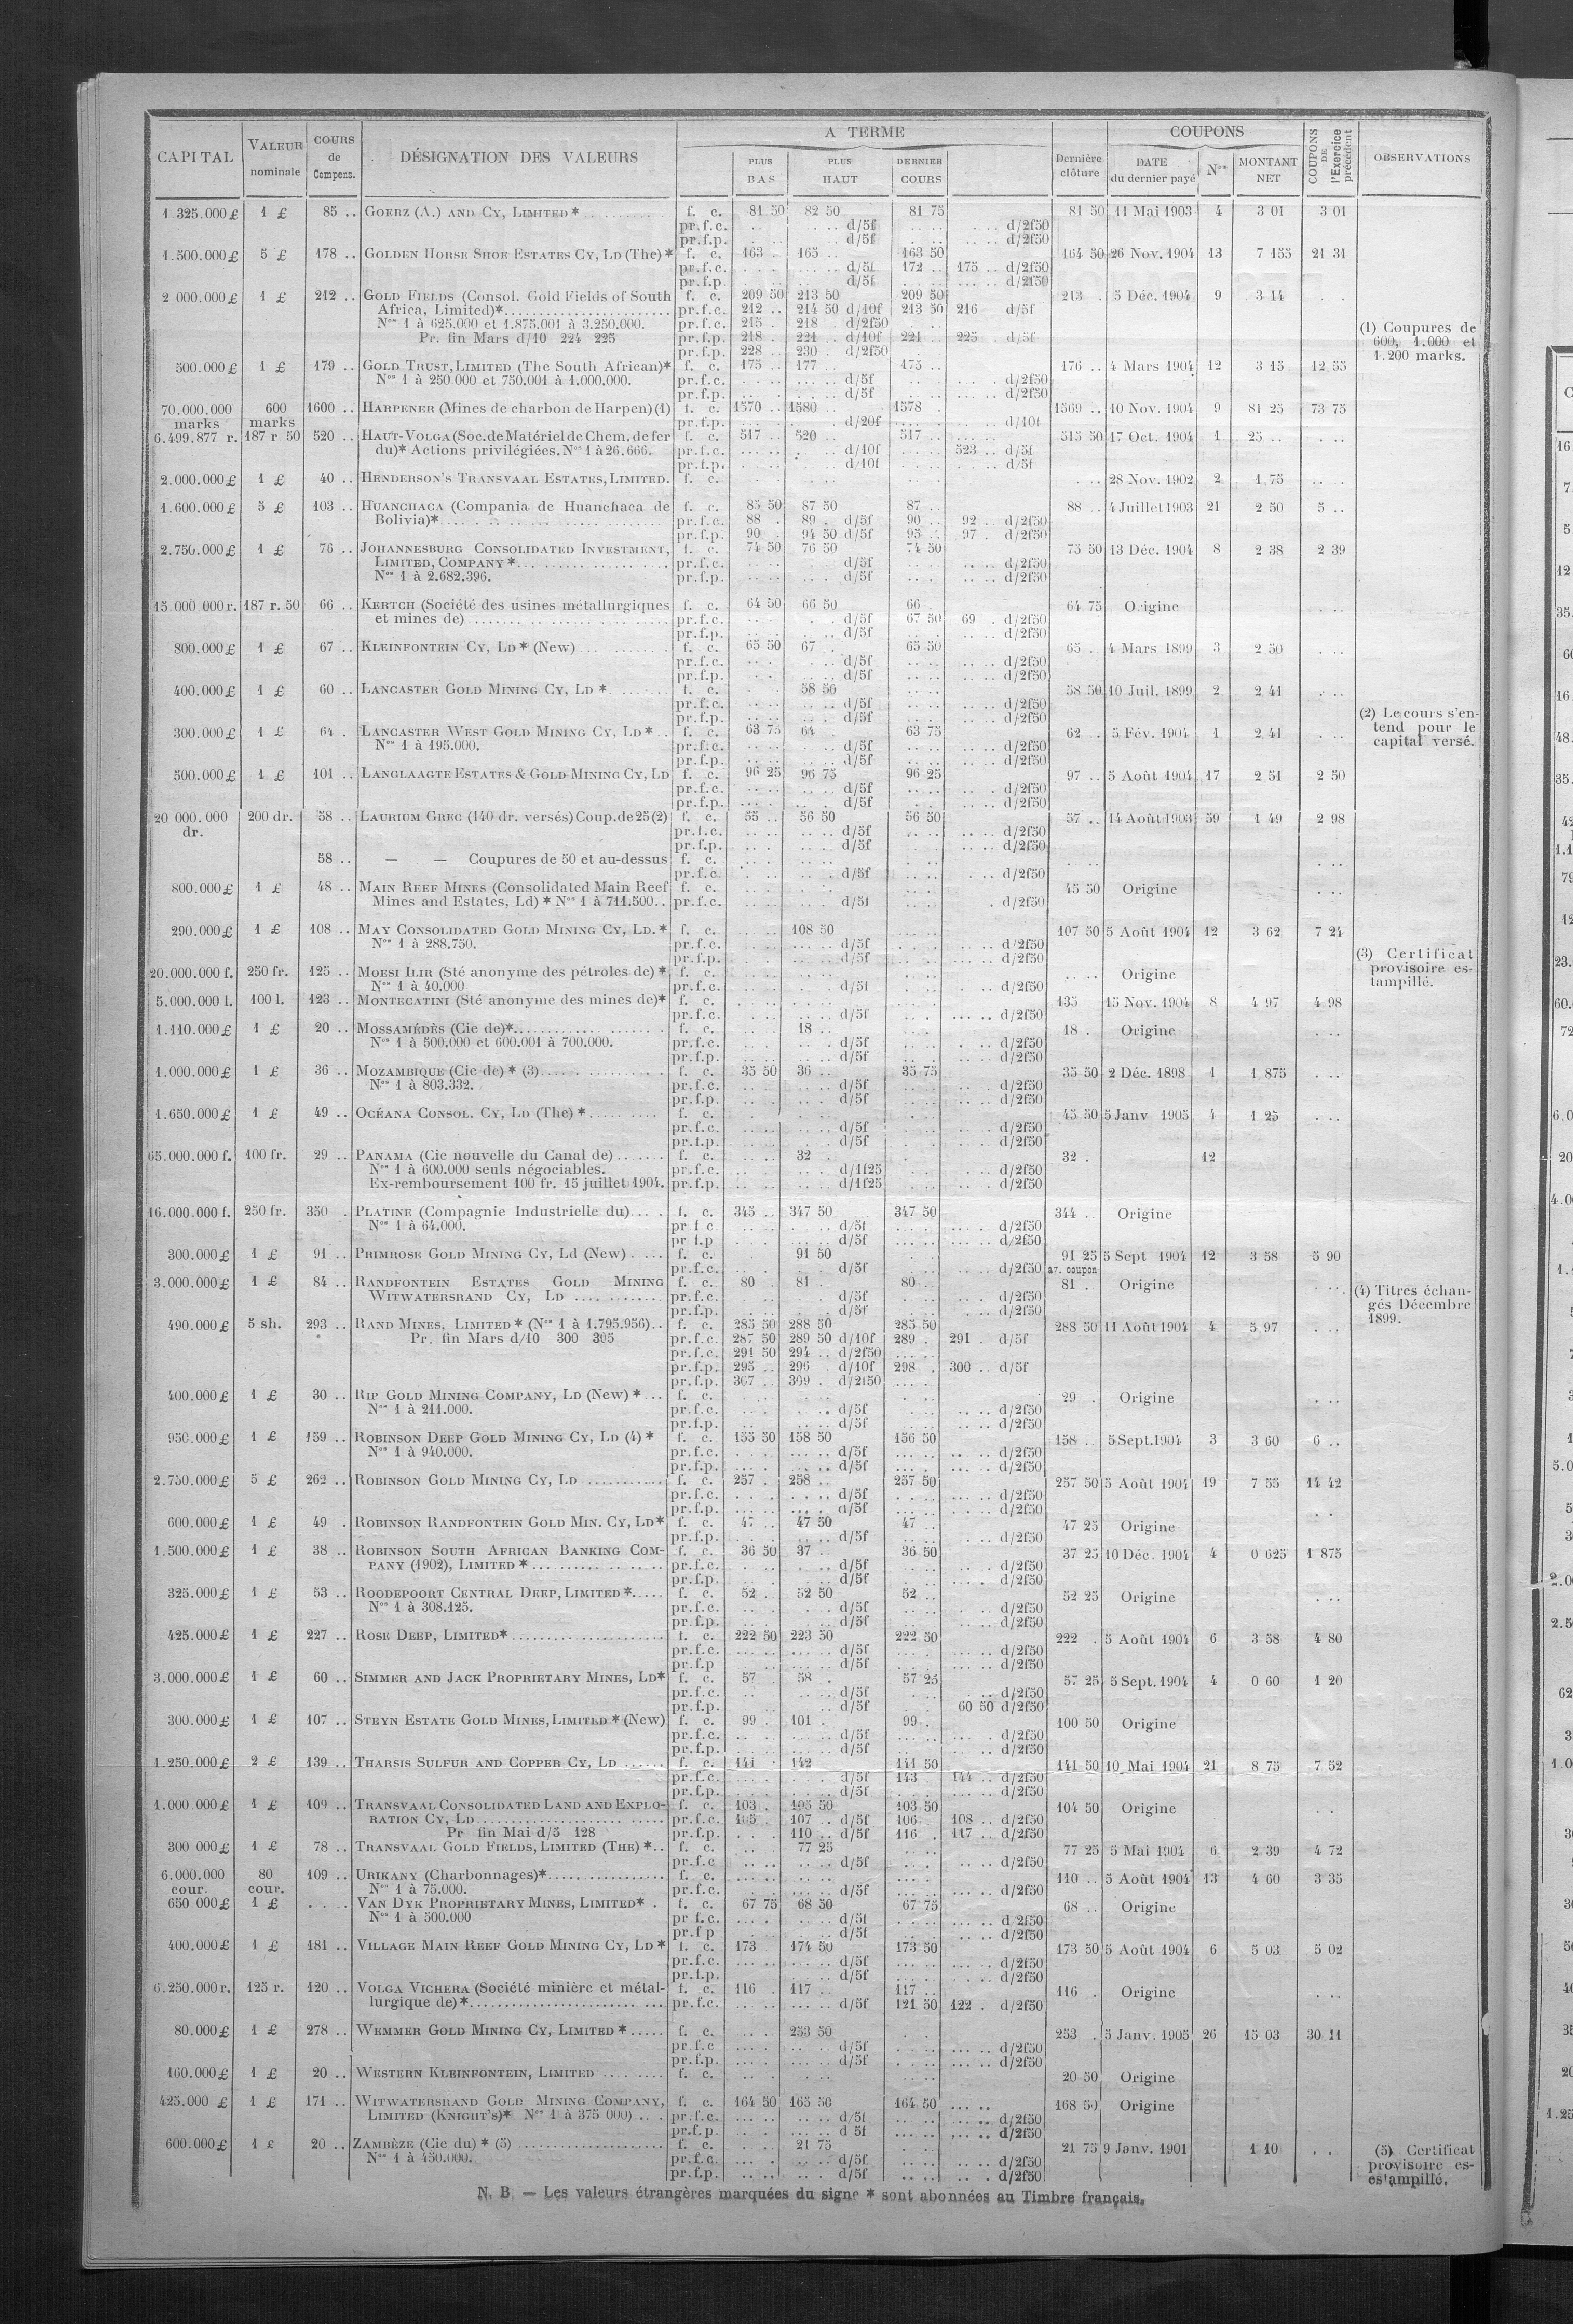 CAPITAL VALEUR nominale COURS de Compens. DÉSIGNATION DES VALEURS A TERME PLUS BAS PLUS HAUT DERNIER COURS Dernière clôture COUPONS DATE du dernier payé Nos MONTANT NET COUPONS DE l'Exercice précédent OBSERVATIONS
1.325.000£ 1 £ 85 .. GOERZ (A.) AND CY, LIMITED* f. c. 81 50 82 50 81 75 81 50 11 Mai 1903 4 3 01 3 01
pr.f.c. d/5f d/2f50
pr.f.p. d/5f d/2f50
1.500.000£ 5 £ 178 .. GOLDEN HORSE SHOE ESTATES CY, LD (The)* f. c. 163 165 163 50 164 50 26 Nov. 1904 13 7 155 21 31
pr.f.c. d/5f 172 .. 175 .. d/2f50
pr.f.p. d/5f d/2f50
2 000.000£ 1 £ 212 .. GOLD FIELDS (Consol. Gold Fields of South f. c. 209 50 213 50 209 50 213 5 Déc. 1904 9 3 14
Africa, Limited)* pr.f.c. 212 .. 214 50 d/10f 213 50 216 d/5f
Nos 1 à 625.000 et 1.875.001 à 3.250.000. pr.f.c. 215 218 d/2f50
Pr. fin Mars d/10 224 225 pr.f.p. 218 221 d/10f 221 225 d/5f
pr.f.p. 228 230 d/2f50
(1) Coupures de
600, 1.000 et
1.200 marks.
500.000£ 1 £ 179 .. GOLD TRUST, LIMITED (The South African)* f. c. 175 177 175 .. 176 .. 4 Mars 1904 12 3 15 12 55
Nos 1 à 250 000 et 750.001 à 1.000.000. pr.f.c. d/5f d/2f50
pr.f.p. d/5f d/2f50
70.000.000 marks 600 marks 1600 .. HARPENER (Mines de charbon de Harpen) (1) f. c. 1570 1580 1578 1569 .. 10 Nov. 1904 9 81 25 73 75
pr.f.p. d/20f d/10f
6.499.877 r. 187 r 50 520 .. HAUT-VOLGA (Soc. de Matériel de Chem. de fer f. c. 517 520 517 515 50 17 Oct. 1904 1 25 ..
du)* Actions privilégiées. Nos 1 à 26.666. pr.f.c. d/10f 523 .. d/5f
pr.f.p. d/10f d/5f
2.000.000£ 1 £ 40 .. HENDERSON'S TRANSVAAL ESTATES, LIMITED. f. c. 28 Nov. 1902 2 1 75
1.600.000£ 5 £ 103 .. HUANCHACA (Compania de Huanchaca de f. c. 85 50 87 50 87 .. 88 .. 4 Juillet 1903 21 2 50 5 ..
Bolivia)* pr.f.c. 88 89 d/5f 90 .. 92 d/2f50
pr.f.p. 90 94 50 d/5f 95 97 d/2f50
2.750.000£ 1 £ 76 .. JOHANNESBURG CONSOLIDATED INVESTMENT, f. c. 74 50 76 50 74 50 75 50 13 Déc. 1904 8 2 38 2 39
LIMITED, COMPANY* pr.f.c. d/5f d/2f50
Nos 1 à 2.682.396. pr.f.p. d/5f d/2f50
15.000 000 r. 187 r. 50 66 .. KERTCH (Société des usines métallurgiques f. c. 64 50 66 50 66 64 75 Origine
et mines de) pr.f.c. d/5f 67 50 69 d/2f50
pr.f.p. d/5f d/2f50
800.000£ 1 £ 67 .. KLEINFONTEIN CY, LD* (New) f. c. 65 50 67 65 50 65 4 Mars 1899 3 2 50
pr.f.c. d/5f d/2f50
pr.f.p. d/5f d/2f50
400.000£ 1 £ 60 .. LANCASTER GOLD MINING CY, LD* f. c. 58 50 58 50 10 Juil. 1899 2 2 41
pr.f.c. d/5f d/2f50
pr.f.p. d/5f d/2f50
(2) Le cours s'en-
tend pour le
capital versé.
300.000£ 1 £ 64 . LANCASTER WEST GOLD MINING CY, LD* f. c. 63 75 64 63 75 62 .. 5 Fév. 1904 1 2 41
Nos 1 à 195.000. pr.f.c. d/5f d/2f50
pr.f.p. d/5f d/2f50
500.000£ 1 £ 101 .. LANGLAAGTE ESTATES & GOLD MINING CY, LD f. c. 96 25 96 75 96 25 97 .. 5 Août 1904 17 2 51 2 50
pr.f.c. d/5f d/2f50
pr.f.p. d/5f d/2f50
20 000.000 dr. 200 dr. 58 .. LAURIUM GREC (140 dr. versés) Coup. de 25 (2) f. c. 55 .. 56 50 56 50 57 .. 14 Août 1903 59 1 49 2 98
pr.f.c. d/5f d/2f50
pr.f.p. d/5f d/2f50
58 .. — — Coupures de 50 et au-dessus f. c.
pr.f.c. d/5f d/2f50
800.000£ 1 £ 48 .. MAIN REEF MINES (Consolidated Main Reef f. c. 45 50 Origine
Mines and Estates, Ld)* Nos 1 à 711.500 pr.f.c. d/5f d/2f50
290.000£ 1 £ 108 .. MAY CONSOLIDATED GOLD MINING CY, LD.* f. c. 108 50 107 50 5 Août 1904 12 3 62 7 24
Nos 1 à 288.750. pr.f.c. d/5f d/2f50
pr.f.p. d/5f d/2f50
(3) Certificat
provisoire es-
tampillé.
20.000.000 f. 250 fr. 125 .. MOESI ILIR (Sté anonyme des pétroles de)* f. c. Origine
Nos 1 à 40.000 pr.f.c. d/5f d/2f50
5.000.000 l. 100 l. 123 .. MONTECATINI (Sté anonyme des mines de)* f. c. 135 15 Nov. 1904 8 4 97 4 98
pr.f.c. d/5f d/2f50
1.110.000£ 1 £ 20 .. MOSSAMÉDÈS (Cie de)* f. c. 18 .. 18 Origine
Nos 1 à 500.000 et 600.001 à 700.000. pr.f.c. d/5f d/2f50
pr.f.p. d/5f d/2f50
1.000.000£ 1 £ 36 .. MOZAMBIQUE (Cie de)* (3) f. c. 35 50 36 .. 35 75 35 50 2 Déc. 1898 1 1 875
Nos 1 à 803.332. pr.f.c. d/5f d/2f50
pr.f.p. d/5f d/2f50
1.650.000£ 1 £ 49 .. OCÉANA CONSOL. CY, LD (The)* f. c. 45 50 5 Janv 1905 4 1 25
pr.f.c. d/5f d/2f50
pr.f.p. d/5f d/2f50
65.000.000 f. 100 fr. 29 .. PANAMA (Cie nouvelle du Canal de) f. c. 32 32 12
Nos 1 à 600.000 seuls négociables. pr.f.c. d/1f25 d/2f50
Ex-remboursement 100 fr. 15 juillet 1904. pr.f.p. d/1f25 d/2f50
16.000.000 f. 250 fr. 350 . PLATINE (Compagnie Industrielle du) f. c. 345 347 50 347 50 344 Origine
Nos 1 à 64.000. pr f c d/5f d/2f50
pr f.p d/5f d/2f50
300.000£ 1 £ 91 .. PRIMROSE GOLD MINING CY, Ld (New) f. c. 91 50 91 25 5 Sept 1904 12 3 58 5 90
pr.f.c. d/5f d/2f50 av. coupon
3.000.000£ 1 £ 84 .. RANDFONTEIN ESTATES GOLD MINING f. c. 80 81 80 81 Origine
WITWATERSRAND CY, LD pr.f.c. d/5f d/2f50
pr.f.p. d/5f d/2f50
(4) Titres échan-
gés Décembre
1899.
490.000£ 5 sh. 293 .. RAND MINES, LIMITED* (Nos 1 à 1.795.956) f. c. 285 50 288 50 285 50 288 50 11 Août 1904 4 5 97
Pr. fin Mars d/10 300 305 pr.f.c. 287 50 289 50 d/10f 289 291 d/5f
pr.f.c. 291 50 294 .. d/2f50
pr.f.p. 295 296 d/10f 298 300 .. d/5f
pr.f.p. 307 309 d/2f50
400.000£ 1 £ 30 .. RIP GOLD MINING COMPANY, LD (New)* f. c. 29 Origine
Nos 1 à 211.000. pr.f.c. d/5f d/2f50
pr.f.p. d/5f d/2f50
950.000£ 1 £ 159 .. ROBINSON DEEP GOLD MINING CY, LD (4)* f. c. 155 50 158 50 156 50 158 5 Sept. 1904 3 3 60 6 ..
Nos 1 à 940.000. pr.f.c. d/5f d/2f50
pr.f.p. d/5f d/2f50
2.750.000£ 5 £ 262 .. ROBINSON GOLD MINING CY, LD f. c. 257 258 257 50 257 50 5 Août 1904 19 7 55 14 42
pr.f.c. d/5f d/2f50
pr.f.p. d/5f d/2f50
600.000£ 1 £ 49 . ROBINSON RANDFONTEIN GOLD MIN. CY, LD* f. c. 47 .. 47 50 47 .. 47 25 Origine
pr.f.p. d/5f d/2f50
1.500.000£ 1 £ 38 .. ROBINSON SOUTH AFRICAN BANKING COM- f. c. 36 50 37 36 50 37 25 10 Déc. 1904 4 0 625 1 875
PANY (1902), LIMITED* pr.f.c. d/5f d/2f50
pr.f.p. d/5f d/2f50
325.000£ 1 £ 53 .. ROODEPOORT CENTRAL DEEP, LIMITED* f. c. 52 52 50 52 .. 52 25 Origine
Nos 1 à 308.125. pr.f.c. d/5f d/2f50
pr.f.p. d/5f d/2f50
425.000£ 1 £ 227 .. ROSE DEEP, LIMITED* f. c. 222 50 223 50 222 50 222 5 Août 1904 6 3 58 4 80
pr.f.c. d/5f d/2f50
pr.f.p d/5f d/2f50
3.000.000£ 1 £ 60 .. SIMMER AND JACK PROPRIETARY MINES, LD* f. c. 57 58 57 25 57 25 5 Sept. 1904 4 0 60 1 20
pr.f.c. d/5f d/2f50
pr.f.p. d/5f 60 50 d/2f50
300.000£ 1 £ 107 .. STEYN ESTATE GOLD MINES, LIMITED* (New) f. c. 99 101 99 100 50 Origine
pr.f.c. d/5f d/2f50
pr.f.p. d/5f d/2f50
1.250.000£ 2 £ 139 .. THARSIS SULFUR AND COPPER CY, LD f. c. 141 142 141 50 141 50 10 Mai 1904 21 8 75 7 52
pr.f.c. d/5f 143 144 .. d/2f50
pr.f.p. d/5f d/2f50
1.000.000£ 1 £ 109 .. TRANSVAAL CONSOLIDATED LAND AND EXPLO- f. c. 103 105 50 103 50 104 50 Origine
RATION CY, LD pr.f.c. 105 107 d/5f 106 108 .. d/2f50
Pr fin Mai d/5 128 pr.f.p. 110 .. d/5f 116 117 .. d/2f50
300 000£ 1 £ 78 .. TRANSVAAL GOLD FIELDS, LIMITED (THE)* f. c. 77 25 77 25 5 Mai 1904 6 2 39 4 72
pr.f.c d/5f d/2f50
6.000.000 cour. 80 cour. 109 .. URIKANY (Charbonnages)* f. c. 110 .. 5 Août 1904 13 4 60 3 35
Nos 1 à 75.000. pr.f.c. d/5f d/2f50
650 000£ 1 £ VAN DYK PROPRIETARY MINES, LIMITED* f. c. 67 75 68 50 67 75 68 .. Origine
Nos 1 à 500.000 pr f.c. d/5f d/2f50
pr.f p d/5f d/2f50
400.000£ 1 £ 181 .. VILLAGE MAIN REEF GOLD MINING CY, LD* f. c. 173 174 50 173 50 173 50 5 Août 1904 6 5 03 5 02
pr.f.c. d/5f d/2f50
pr.f.p. d/5f d/2f50
6.250.000 r. 125 r. 120 .. VOLGA VICHERA (Société minière et métal- f. c. 116 117 117 116 Origine
lurgique de)* pr.f.c. d/5f 121 50 122 d/2f50
80.000£ 1 £ 278 .. WEMMER GOLD MINING CY, LIMITED* f. c. 253 50 253 5 Janv. 1905 26 15 03 30 11
pr.f.c d/5f d/2f50
pr.f.p. d/5f d/2f50
160.000£ 1 £ 20 .. WESTERN KLEINFONTEIN, LIMITED f. c. 20 50 Origine
425.000 £ 1 £ 171 .. WITWATERSRAND GOLD MINING COMPANY, f. c. 164 50 165 50 164 50 168 50 Origine
LIMITED (KNIGHT'S)* Nos 1 à 375 000) pr.f.c. d/5f d/2f50
pr.f.p. d 5f d/2f50
600.000£ 1 £ 20 .. ZAMBÈZE (Cie du)* (5) f. c. 21 75 21 75 9 Janv. 1901 1 10
Nos 1 à 450.000. pr.f.c. d/5f d/2f50
pr.f.p. d/5f d/2f50
(5) Certificat
provisoire es-
estampillé.
N. B. — Les valeurs étrangères marquées du signe * sont abonnées au Timbre français.